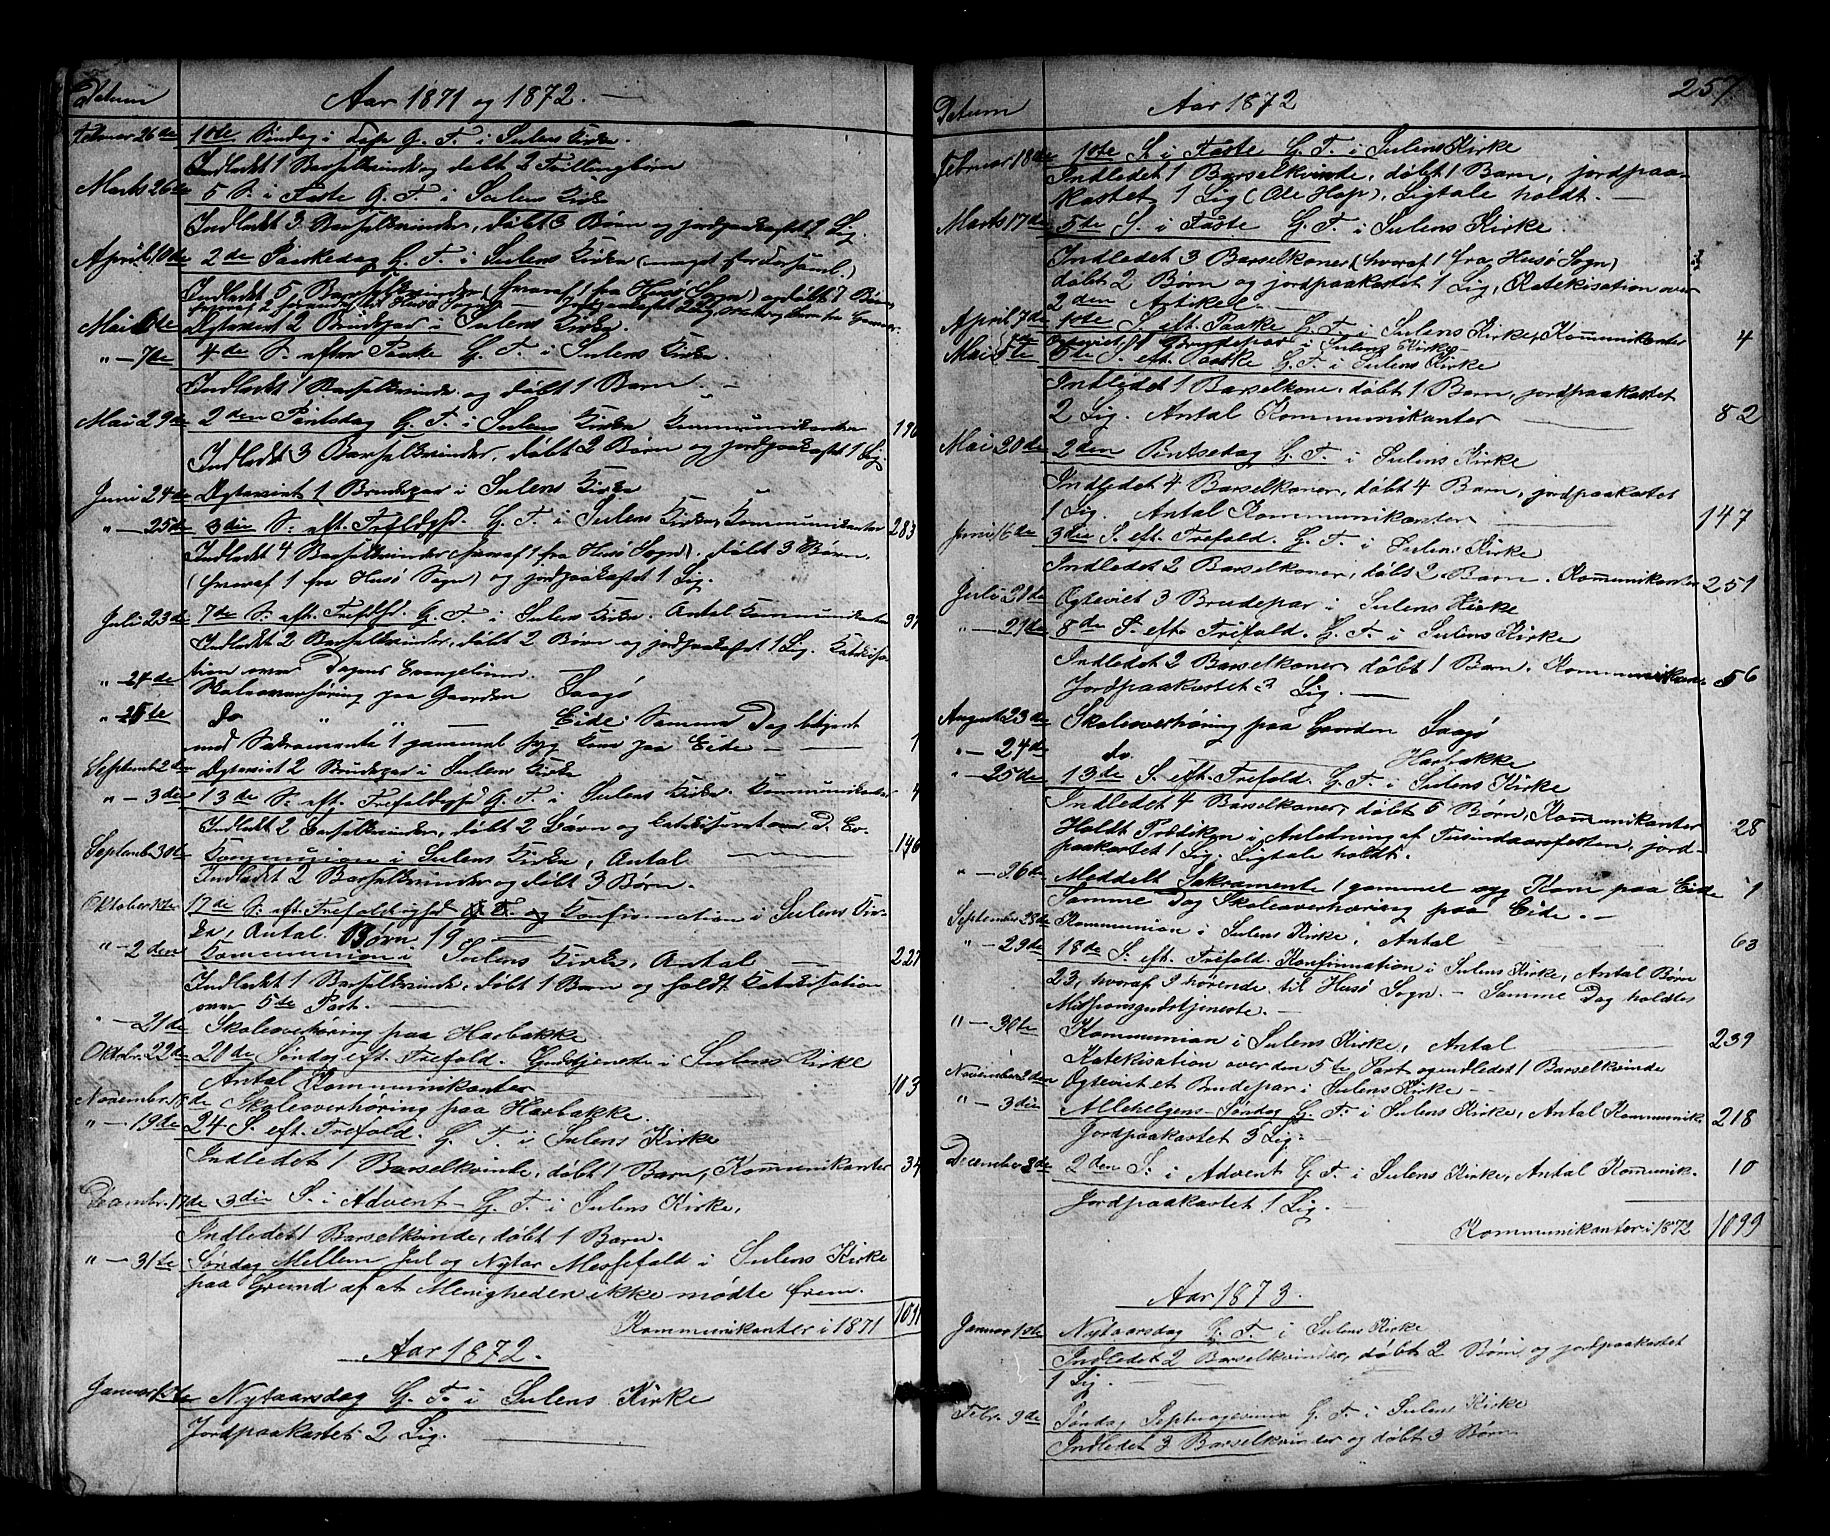 Datum
Aar 1871 og 1872. —
Februar 26de 1ste Søndag i Faste G. T. i Sulens Kirke.
Indledet 1 Barselkvinde og døbt 2 Tvillingbørn
Marts 26de 5 S. i Faste G. T. i Sulens Kirke
Indledet 3 Barselkvinder, døbt 3 Børn og jordpaakastet 1 Lig.
April 10de 2den Paaskedag G. T. i Sulens Kirke
Indledet 5 Barselkvinder (hvoraf 1 fra Husø Sogn) og døbt 7 Børn
Mai 6te Ægteviet 2 Brudepar i Sulens Kirke.
" — 7de 4de S. efter Paaske G. T. i Sulens Kirke.
Indledet 1 Barselkvinde og døbt 1 Barn. —
Mai 29de 2den Pintsdag G. T. i Sulens Kirke Kommunikanter 190
Indledet 3 Barselkvinder, døbt 2 Børn og jordpaakastet 1 Lig
Juni 24de Ægteviet 1 Brudepar i Sulens Kirke
" — 25de 3die S. eft. Trefoldighd. G. T. i Sulens Kirke, Kommunikanter 283
Indledet 4 Barselkvinder (hvoraf 1 fra Husø Sogn), døbt 3 Børn,
(hvoraf 1 fra Husø Sogn) og jordpaakastet 1 Lig.
Juli 23de 7de S. eft. Trefoldhd. G. T. i Sulens Kirke. Antal Kommunikanter 91
Indledet 2 Barselkvinder, døbt 2 Børn og jordpaakastet 1 Lig. Katekisa-
tion over Dagens Evangelium.
" — 24de Skoleoverhøring paa Gaarden Saagø
" — 25te do " " — Eide. Samme Dag betjent
med Sakramente 1 gammel syg Kone paa Eide — 1
Septembr. 2den Ægteviet 2 Brudepar i Sulens Kirke
" — 3die 13de S. eft. Trefoldighd G. T. i Sulens Kirke. Kommunikanter 4
Indledt 2 Barselkvinder, døbt 2 Børn og katekiseret over D. Ev-
Septembr. 30te Kommunion i Sulens Kirke, Antal — 146
Indledet 2 Barselkvinder og døbt 3 Børn.
Oktober 1ste 17de S. eft. Trefoldighed G. T. og Konfirmation i Sulens Kir-
ke, Antal Børn 19 —
" — 2den Kommunion i Sulens Kirke, Antal — 227
Indledet 1 Barselkvinde, døbt 1 Barn og holdt Katekisation
over 5te Part. —
" — 21de Skoleoverhøring paa Harbakke
Oktbr. 22de 20de Søndag eft. Trefold. Gudstjeneste i Sulens Kirke
Antal Kommunikanter — 103
Novembr. 18de Skoleoverhøring paa Harbakke.
" — 19de 24 S. eft. Trefold. G. T. i Sulens Kirke
Indledet 1 Barselkvinde, døbt 1 Barn, Kommunikanter 34
Decembr. 17de 3die S. i Advent — G. T. i Sulens Kirke,
Indledet 1 Barselkvinde, døbt 1 Barn.
" — 31te Søndag Mellem Jul og Nytar Messefald i Sulens Kirke
paa Grund af at Menigheden ikke mødte frem.
Kommunikanter i 1871 1091
Aar 1872.
Januar 1ste Nytaarsdag G. T. i Sulens Kirke
Jordpaakastet 2 Lig. —
257
Datum
Aar 1872
Februar 18de 1ste S. i Faste G. T. i Sulens Kirke
Indledet 1 Barselkvinde, døbt 1 Barn, jordpaa-
kastet 1 Lig (Ole Hop), Ligtale holdt. —
Marts 17de 5te S. i Faste G. T. i Sulens Kirke.
Indledet 3 Barselkoner (hvoraf 1 fra Husø Sogn)
døbt 2 Børn og jordpaakastet 1 Lig, Katekisation over
2den Artikel —
April 7de 1ste S. eft. Paaske G. T. i Sulens Kirke, Kommunikanter 4
Ægteviet 1 Brudepar i Sulens Kirke —
Mai 5te 5te S. eft. Paaske G. T. i Sulens Kirke
Indledet 1 Barselkone, døbt 1 Barn, jordpaakastet
2 Lig. Antal Kommunikanter — 82
Mai 20de 2den Pintsedag G. T. i Sulens Kirke
Indledet 4 Barselkoner, døbt 4 Barn, jordpaakastet
1 Lig Antal Kommunikanter — 147
Juni 16de 3die S. eft. Trefold. G. T. i Sulens Kirke
Indledet 2 Barselkoner, døbt 2 Barn. Kommunikanter 251
Juli 28de Ægteviet 3 Brudepar i Sulens Kirke
" — 21de 8de S. eft. Trefold. G. T. i Sulens Kirke
Indledet 2 Barselkoner, døbt 1 Barn. Kommunikant. 56
Jordpaakastet 3 Lig. —
August 23de Skoleoverhøring paa Gaarden Saagø
" — 24de do. — Harbakke
" — 25de 13de S. eft. Trefold. G. T. i Sulens Kirke
Indledet 4 Barselkoner, døbt 5 Børn, Kommunikanter 28
Holdt Prædiken i Anledning af Tusindaarsfesten, jord-
paakastet 1 Lig. Ligtale holdt.
" — 26de Meddelt Sakramente 1 gammel syg Kone paa Eide 1
Samme Dag Skoleoverhøring paa Eide. —
September 28de Kommunion i Sulens Kirke, Antal — 63
" — 29de 18de S. eft. Trefold Konfirmation i Sulens Kirke, Antal Børn
23, hvoraf 9 hørende til Husø Sogn. — Samme Dag holdtes
Missionsgudstjeneste. —
" — 30te Kommunion i Sulens Kirke, Antal — 239
Katekisation over den 5te Part og indledet 1 Barselkvinde
November 2den Ægteviet et Brudepar i Sulens Kirke —
" — 3die Allehelgens-Søndag G. T. i Sulens Kirke, Antal Kommunik. 218
Jordpaakastet 3 Lig —
December 8de 2den S. i Advent G. T. i Sulens Kirke, Antal Kommunik. 10
Jordpaakastet 1 Lig. —
Kommunikanter i 1872 1099
Aar 1873.
Januar 1ste Nytaarsdag G. T. i Sulens Kirke
Indledet 2 Barselkvinder, døbt 2 Børn og jordpaakastet
1 Lig. —
Febr. 9de Søndag Septuagesima G. T. i Sulens Kirke
Indledet 3 Barselkvinder og døbt 3 Børn